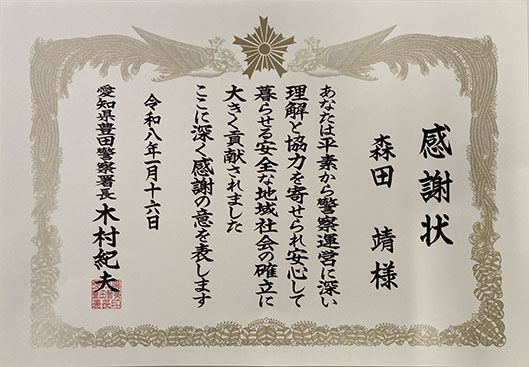 感謝状
森田　靖様
あなたは平素から警察運営に深い
理解と協力を寄せられ安心して
暮らせる安全な地域社会の確立に
大きく貢献されました
ここに深く感謝の意を表します
令和八年一月十六日
愛知県豊田警察署長 木村紀夫